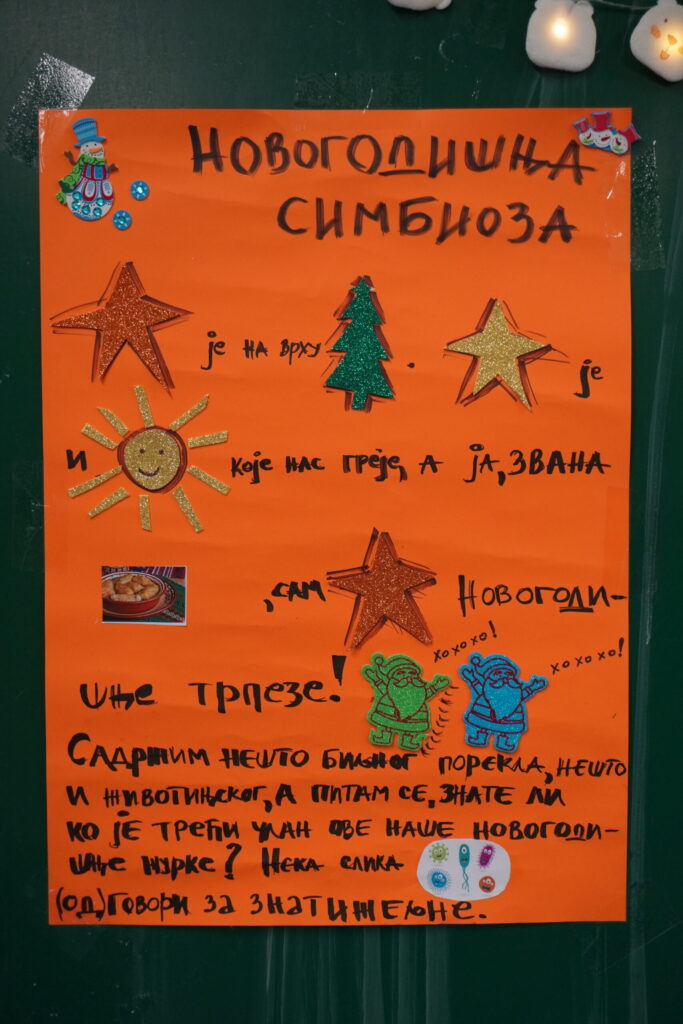 НОВОГОДИШЊА
СИМБИОЗА
је на врху . је
и које нас греје, а ја, звана
, сам Новогоди-
шње трпезе!
хохохо! хохохо!
Садржим нешто биљног порекла, нешто
и животињског, а питам се, знате ли
ко је трећи члан ове наше новогоди-
шње журке? Нека слика
(од)говори за знатижељне.